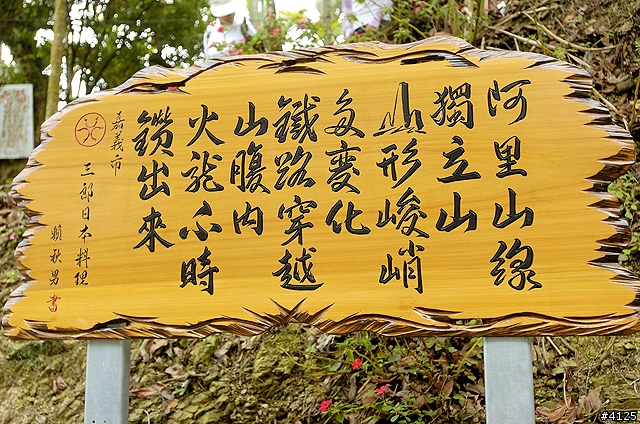 阿里山線
獨立山
山形峻峭
多變化
鐵路穿越
山腹內
火龍不時
鑽出來
嘉義市
三郎日本料理
賴秋男書
#4125